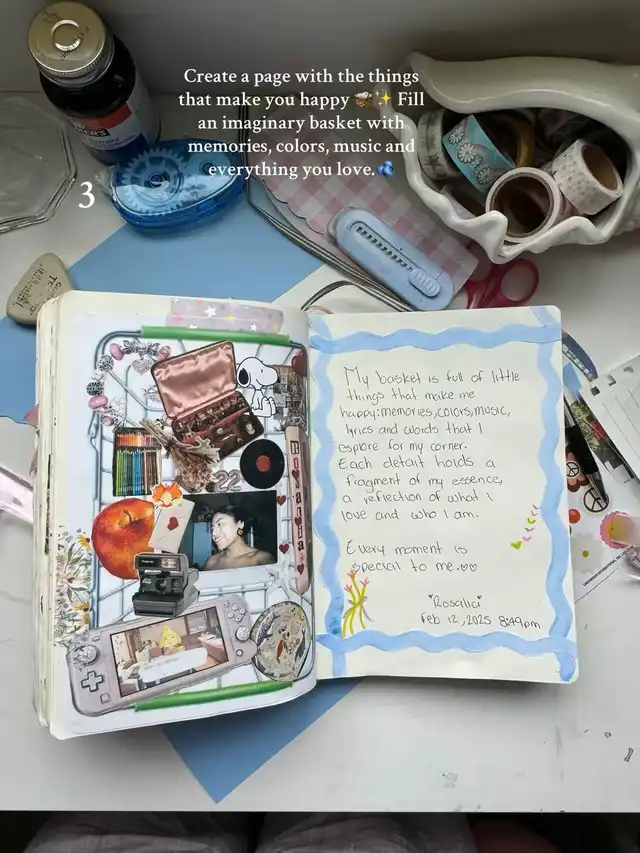 Create a page with the things
that make you happy 🧺✨ Fill
an imaginary basket with
memories, colors, music and
everything you love.🫐
3
22
My basket is full of little
things that make me
happy:memories,colors,music,
lyrics and words that I
explore for my corner.
Each detail holds a
fragment of my essence,
a reflection of what I
love and who I am.
Every moment is
special to me.♡♡
"Rosalia"
Feb 12,2025 8:49pm